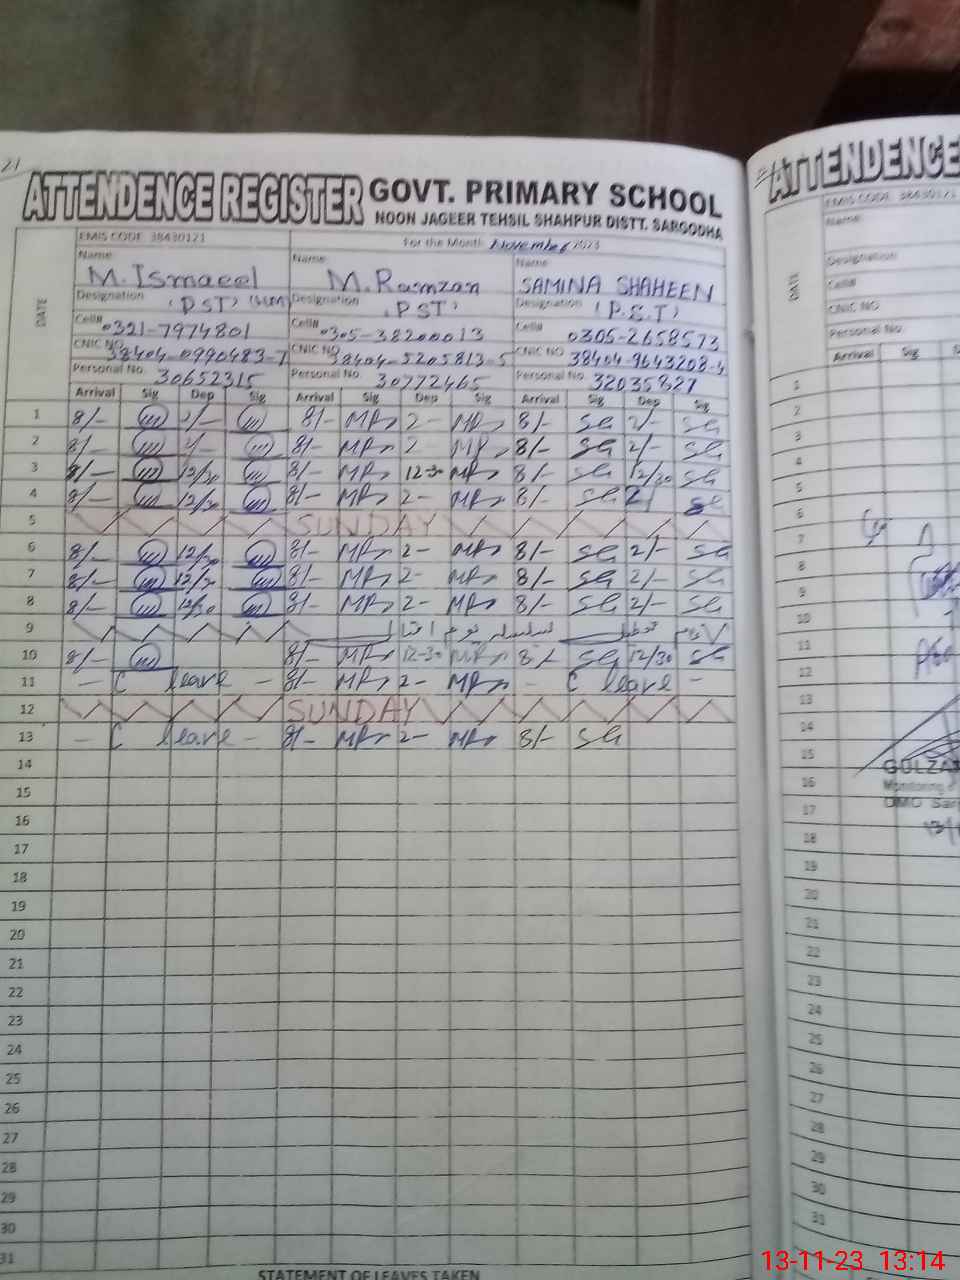 21
ATTENDENCE REGISTER GOVT. PRIMARY SCHOOL
NOON JAGEER TEHSIL SHAHPUR DISTT. SARGODHA
EMIS CODE 38430121 For the Month November 2023
DATE
Name Name Name
M. Ismaeel M. Ramzan SAMINA SHAHEEN
Designation Designation Designation
(PST) PST (P.S.T)
Cell# Cell# Cell#
0321-7974801 0305-38200013 0305-2658573
CNIC NO CNIC NO CNIC NO
38404-0990483-7 38404-5205813-5 38404-9643208-4
Personal No. Personal No. Personal No.
30652315 30772465 32035827
Arrival Sig Dep Sig Arrival Sig Dep Sig Arrival Sig Dep Sig
1 8/- 2/- 8/- MR 2- MR 8/- SG 2/- SG
2 8/- 8/- MR 2- MR 8/- SG 2/- SG
3 8/- 12/30 8/- MR 12-30 MR 8/- SG 12/30 SG
4 8/- 12/30 8/- MR 2- MR 8/- SG 2 SG
5 SUNDAY
6 8/- 12/30 8/- MR 2- MR 8/- SG 2/- SG
7 8/- 12/30 8/- MR 2- MR 8/- SG 2/- SG
8 8/- 12/30 8/- MR 2- MR 8/- SG 2/- SG
9 تعطیل بسلسلہ یوم اقبال
10 8/- 8/- MR 12-30 MR 8/- SG 12/30 SG
11 - C leave - 8/- MR 2- MR - C leave -
12 SUNDAY
13 - C leave - 8/- MR 2- MR 8/- SG
14
15
16
17
18
19
20
21
22
23
24
25
26
27
28
29
30
31
STATEMENT OF LEAVES TAKEN
ATTENDENCE
EMIS CODE 38430121
DATE
Name
Designation
Cell#
CNIC NO
Personal No.
Arrival Sig
1
2
3
4
5
6
7
8
9
10
11
12
13
14
15
16
17
18
19
20
21
22
23
24
25
26
27
28
29
30
31
Monitoring
13-11-23 13:14